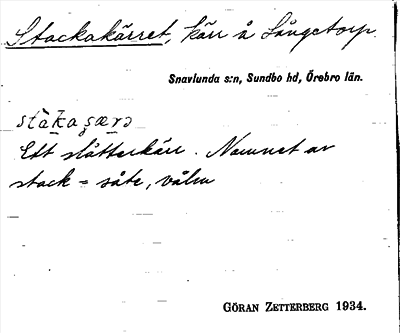 Stackakärret, kärr å Långetorp.
Snavlunda s:n, Sundbo hd, Örebro län.
stàka ʂærə
Ett slåtterkärr. Namnet av
stack = såte, vålm
GÖRAN ZETTERBERG 1934.